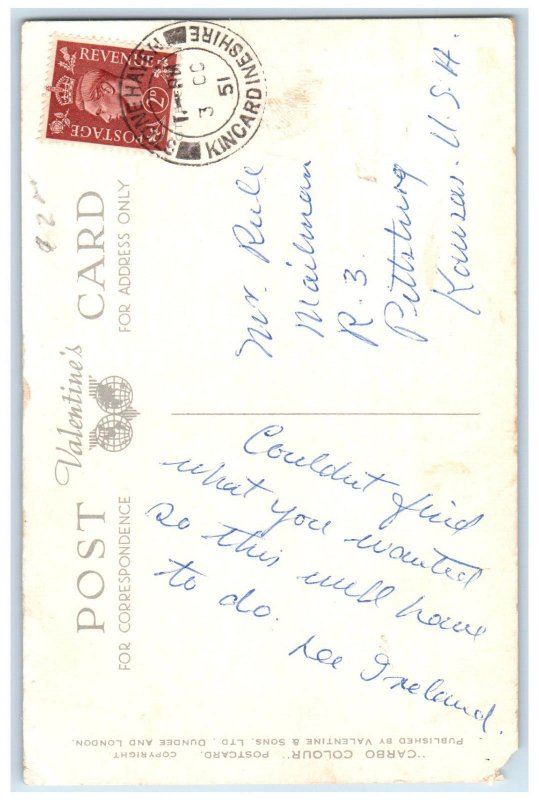 POST Valentine's CARD
FOR CORRESPONDENCE
FOR ADDRESS ONLY
REVENUE
POSTAGE
2D
STONEHAVEN
KINCARDINESHIRE
3 OC
51
Couldnt find
what you wanted
so this will have
to do.
Lee Ireland.
Mr. Rule
Mailman
R. 3.
Pittsburg
Kansas. U.S.A.
"CARBO COLOUR" POSTCARD. COPYRIGHT
PUBLISHED BY VALENTINE & SONS, LTD., DUNDEE AND LONDON.